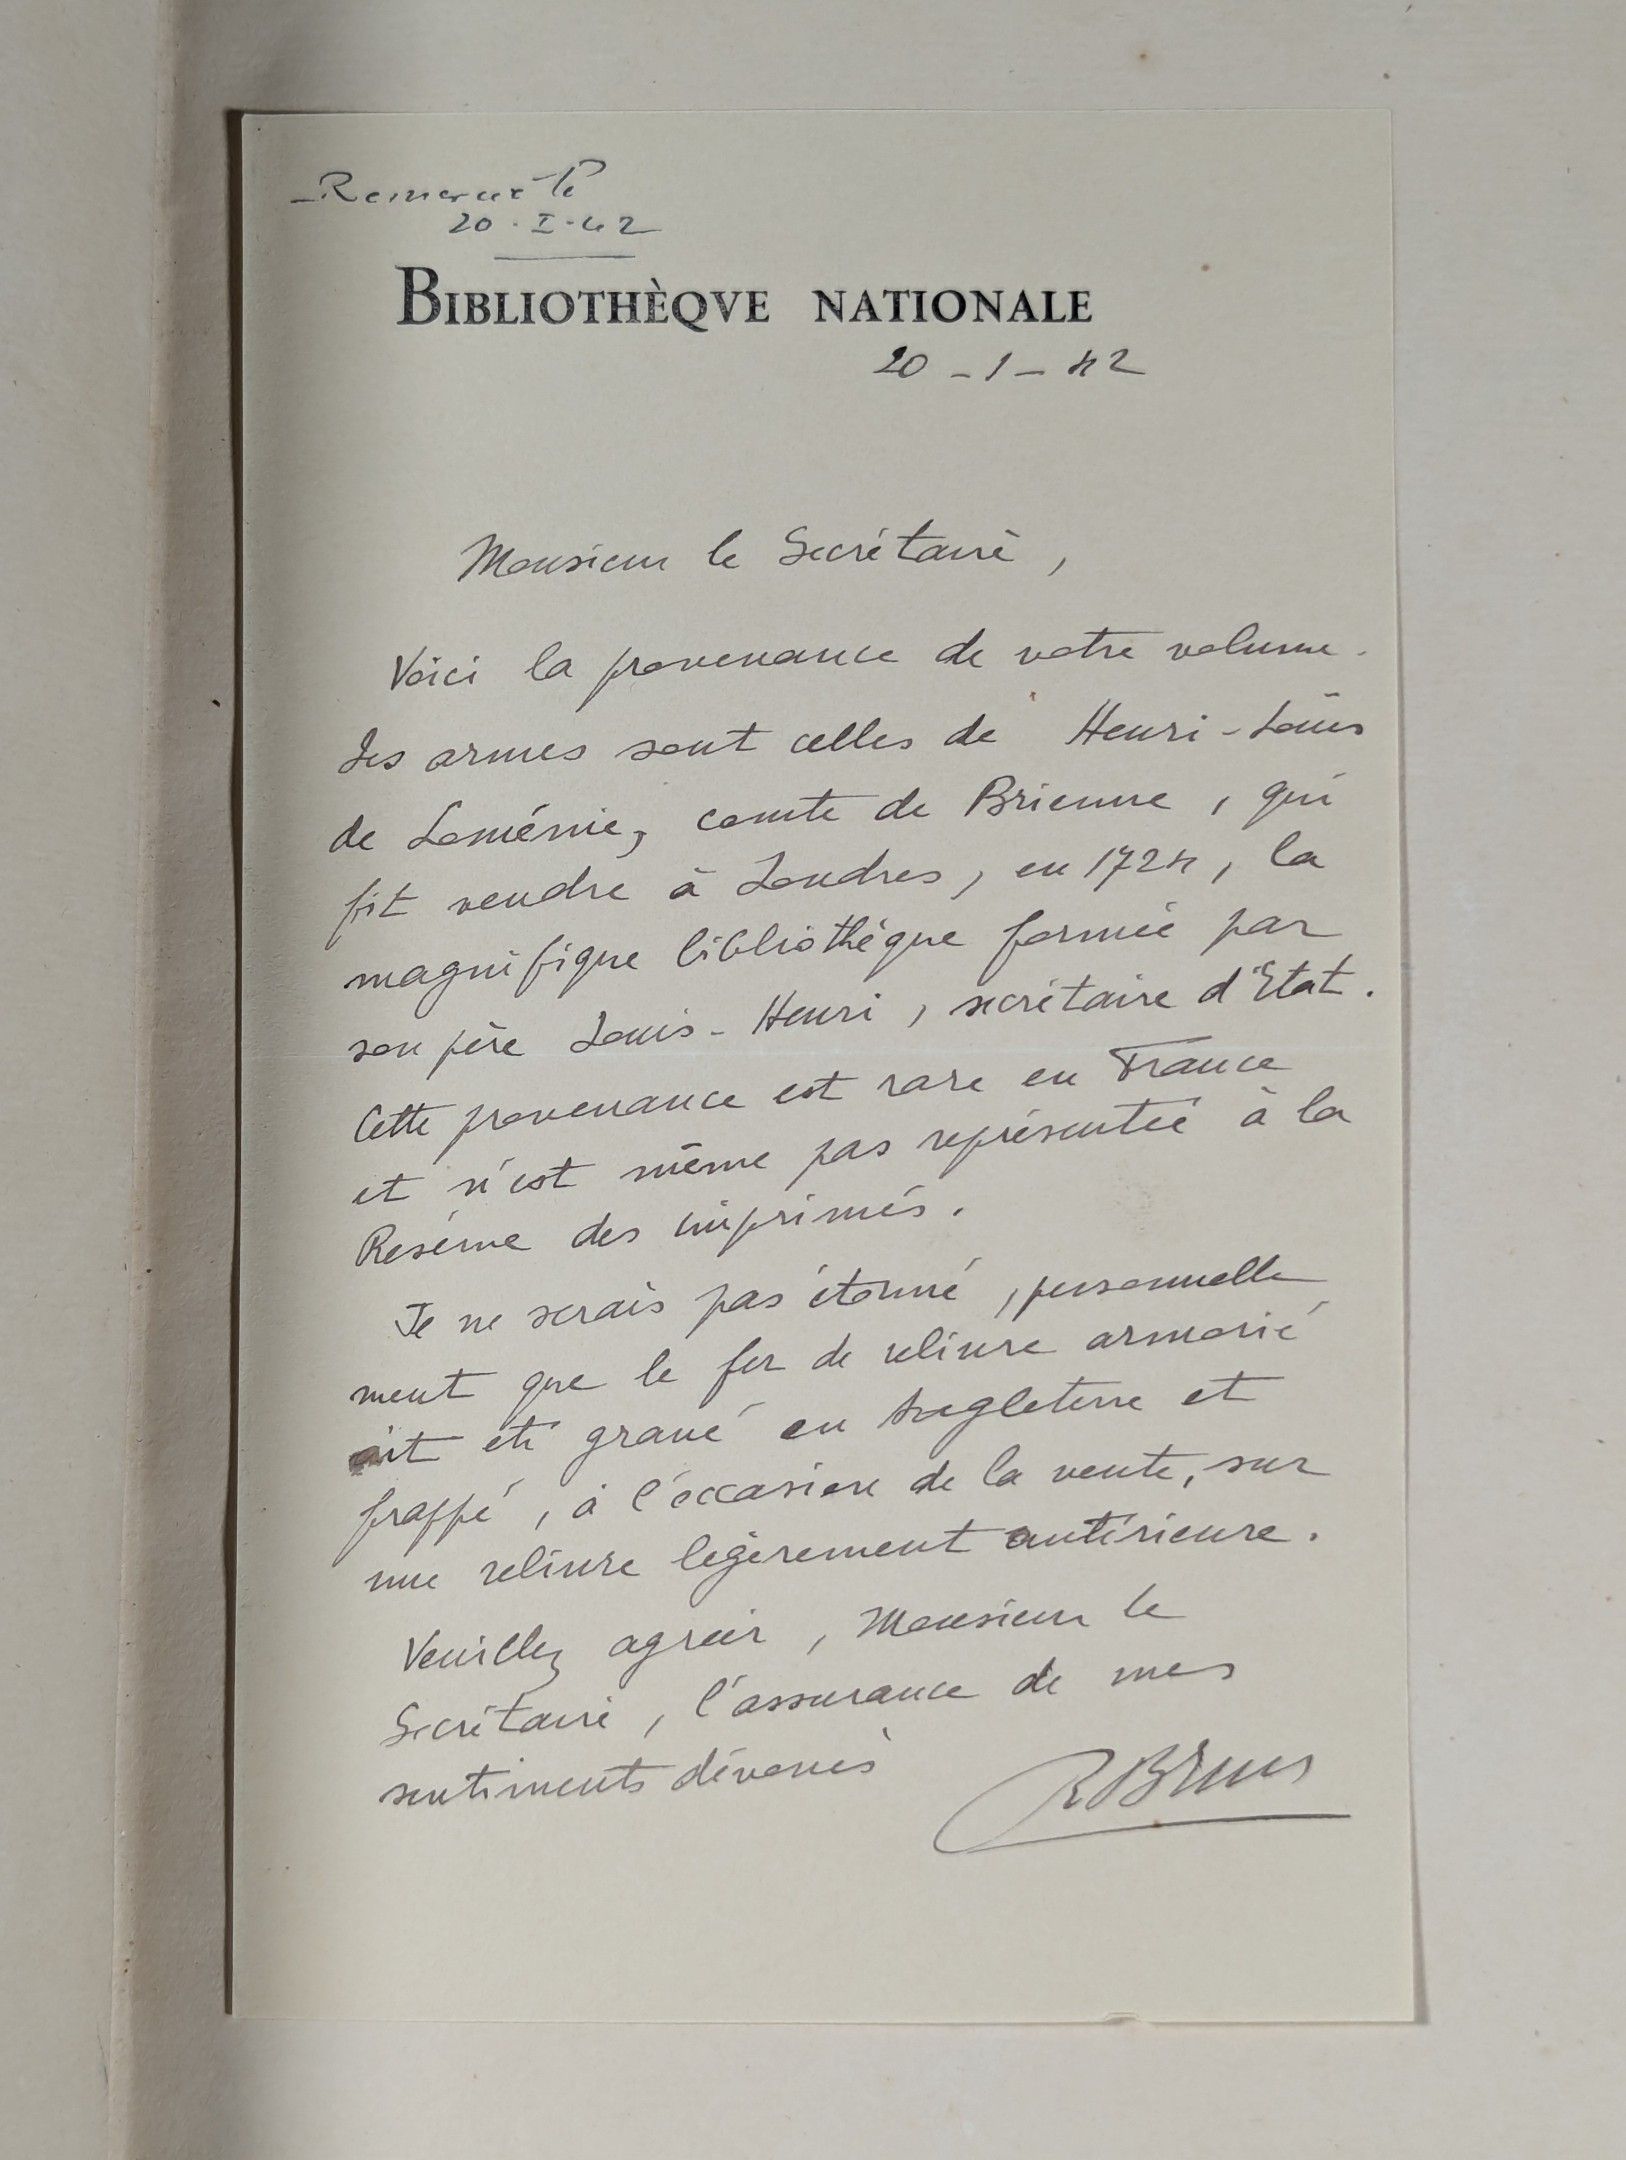 Remercié le
20 · I · 42
BIBLIOTHÈQVE NATIONALE
20 - 1 - 42
Monsieur le Secrétaire,
Voici la provenance de votre volume.
Les armes sont celles de Henri-Louis
de Loménie, comte de Brienne, qui
fit vendre à Londres, en 1724, la
magnifique bibliothèque formée par
son père Louis-Henri, secrétaire d'Etat.
Cette provenance est rare en France
et n'est même pas représentée à la
Reserve des imprimés.
Je ne serais pas étonné, personnelle
ment que le fer de reliure armorié
ait été gravé en Angleterre et
frappé, à l'occasion de la vente, sur
une reliure légèrement antérieure.
Veuillez agréer, Monsieur le
Secrétaire, l'assurance de mes
sentiments dévoués
R Brun